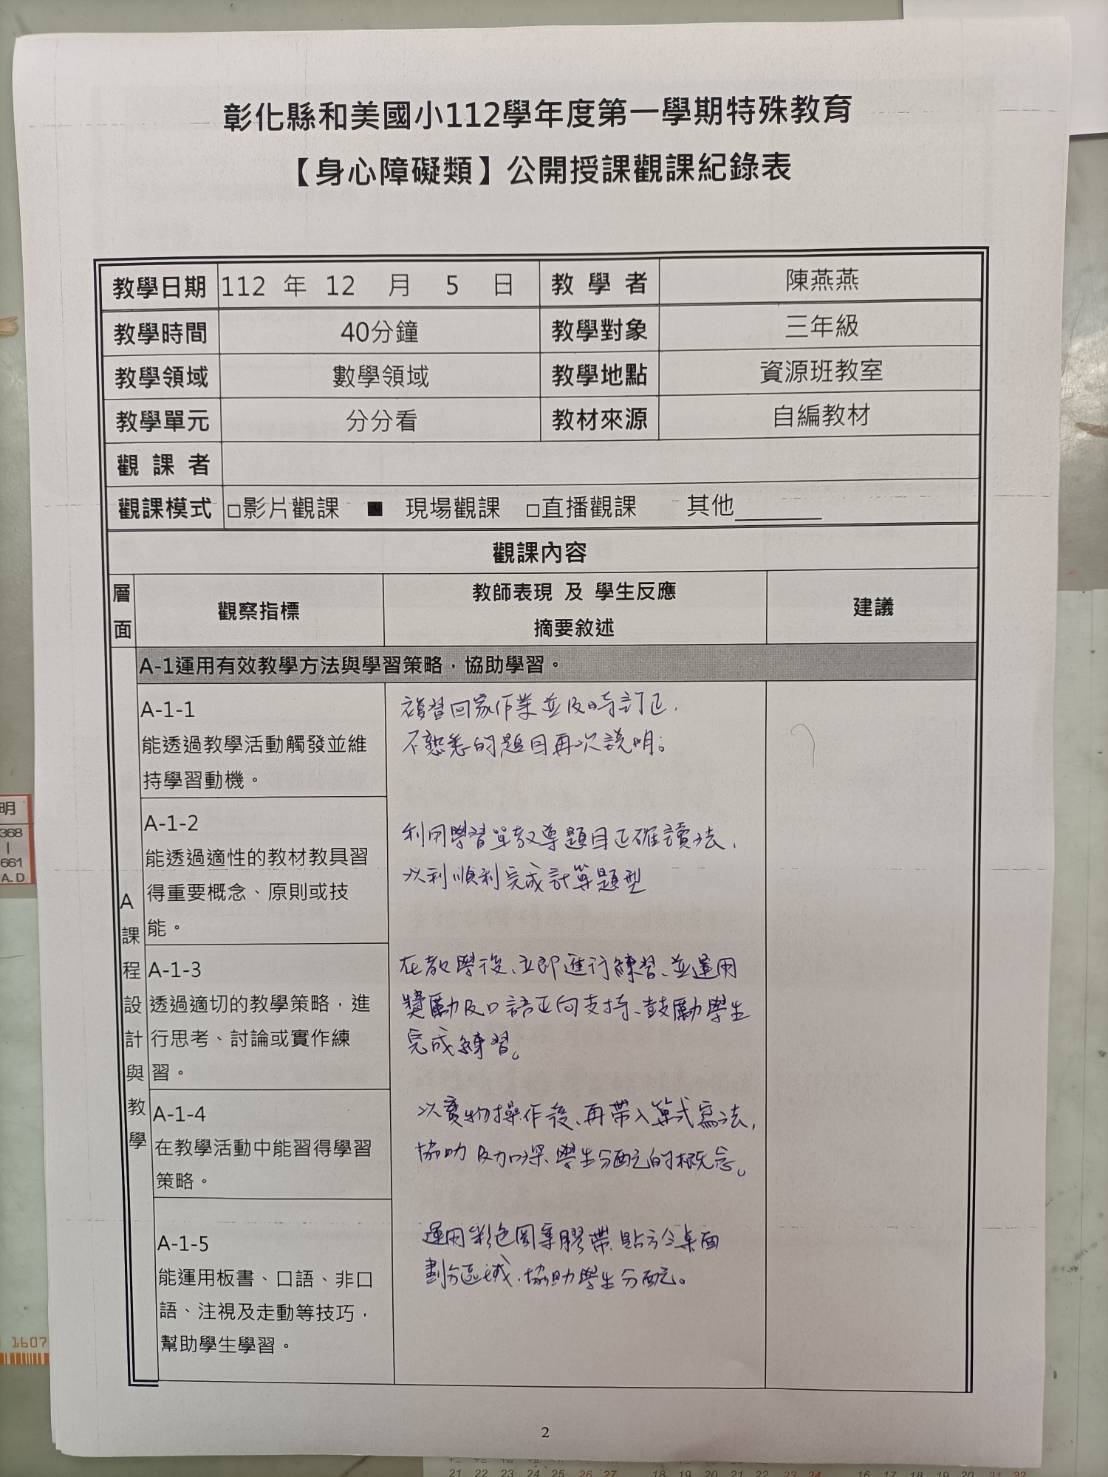 彰化縣和美國小112學年度第一學期特殊教育
【身心障礙類】公開授課觀課紀錄表
教學日期 112 年 12 月 5 日 教 學 者 陳燕燕
教學時間 40分鐘 教學對象 三年級
教學領域 數學領域 教學地點 資源班教室
教學單元 分分看 教材來源 自編教材
觀 課 者
觀課模式 □影片觀課 ■ 現場觀課 □直播觀課 其他______
觀課內容
層面 觀察指標 教師表現 及 學生反應 摘要敘述 建議
A-1運用有效教學方法與學習策略,協助學習。
A課程設計與教學
A-1-1
能透過教學活動觸發並維
持學習動機。
複習回家作業並及時訂正,
不熟悉的題目再次說明。
A-1-2
能透過適性的教材教具習
得重要概念、原則或技
能。
利用學習單教導題目正確讀法,
以利順利完成計算題型
A-1-3
透過適切的教學策略,進
行思考、討論或實作練
習。
在教學後、立即進行練習、並運用
獎勵及口語正向支持、鼓勵學生
完成練習。
A-1-4
在教學活動中能習得學習
策略。
以實物操作後、再帶入算式寫法,
協助及加深學生分配的概念。
A-1-5
能運用板書、口語、非口
語、注視及走動等技巧,
幫助學生學習。
運用彩色圖案膠帶、貼於桌面
劃分區域,協助學生分配。
2
明
368
661
A.D
1607
21 22 23 24 25 26 27 18 19 20 21 22